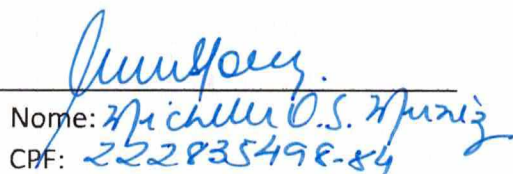 Nome: Michelle O.S. Muniz
CPF: 222835498-84